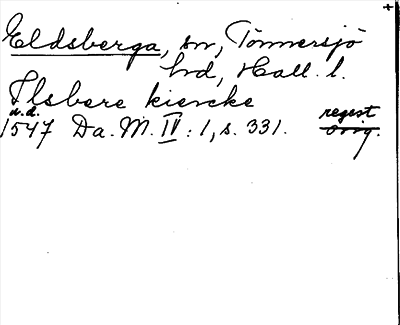 Eldsberga, sn, Tönnersjö
hd, Hall. l.
Ilsbere kiercke
n.d. regest
1547 Da. M. IV: 1, s. 331. Orig.